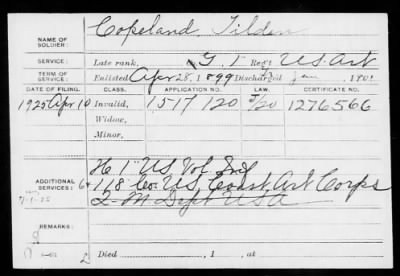 NAME OF SOLDIER: Copeland Tilden
SERVICE: Late rank, Regt U.S. Art
TERM OF SERVICE: Enlisted Apr 28, 1899 Discharged Jan , 1901
DATE OF FILING. CLASS. APPLICATION NO. LAW. CERTIFICATE NO.
1925 Apr 10 Invalid, 1517120 1276566
Widow,
Minor,
H 1" US Vol Inf
ADDITIONAL SERVICES: 118 Co. US Coast Art Corps
Q M Dept USA
REMARKS:
Died , 1 , at